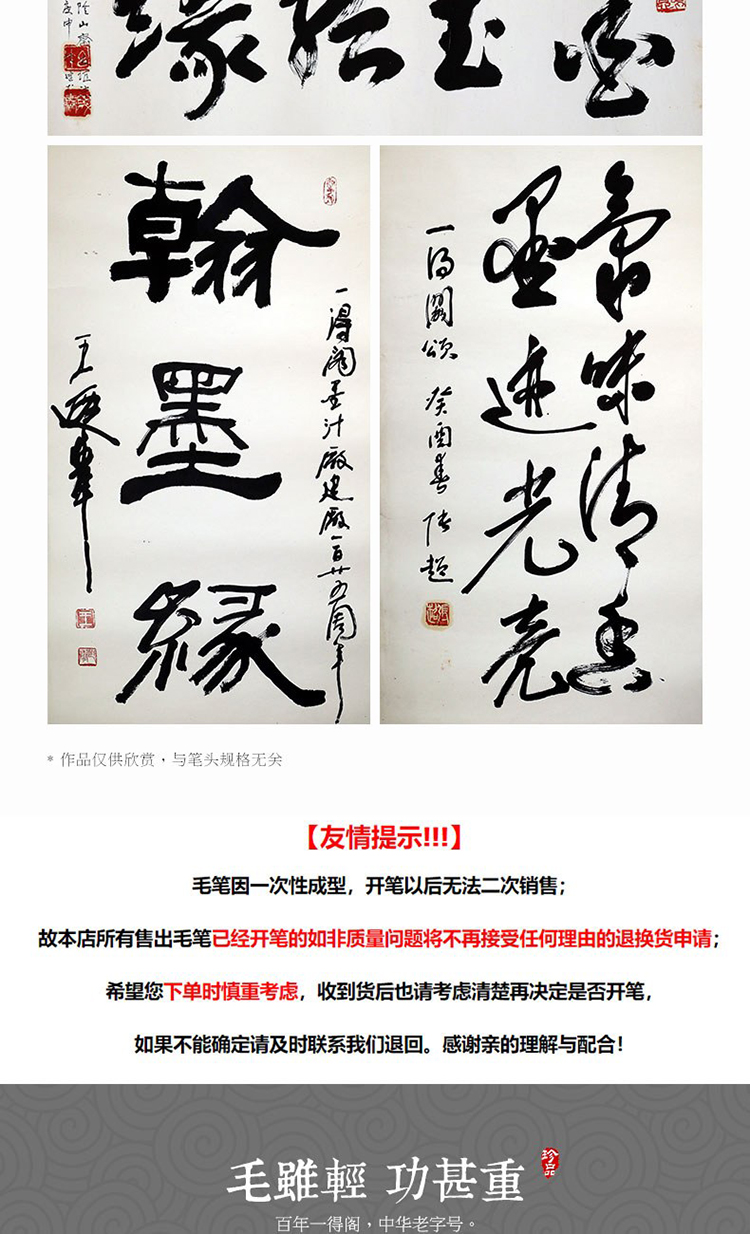 翰墨缘
一得阁墨汁厰建厰一百廿五周年
墨迹光亮
气味清香
一得阁颂 癸酉春 张超
* 作品仅供欣赏，与笔头规格无关
【友情提示!!!】
毛笔因一次性成型，开笔以后无法二次销售；
故本店所有售出毛笔已经开笔的如非质量问题将不再接受任何理由的退换货申请；
希望您下单时慎重考虑，收到货后也请考虑清楚再决定是否开笔，
如果不能确定请及时联系我们退回。感谢亲的理解与配合！
毛雖輕 功甚重
珍品
百年一得阁，中华老字号。